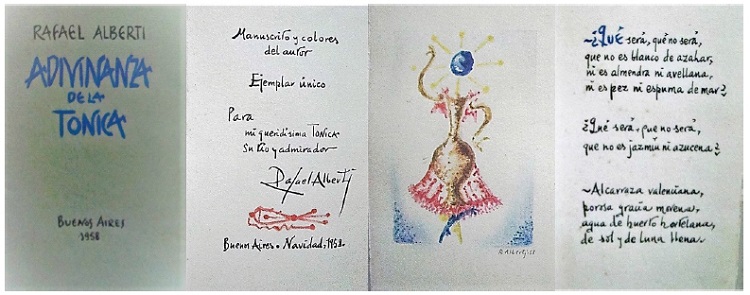 RAFAEL ALBERTI
ADIVINANZA
DE LA
TONICA
BUENOS AIRES
1958
Manuscrito y colores
del autor
Ejemplar único
Para
mi queridísima TONICA
Su tío y admirador
Rafael Alberti
Buenos Aires • Navidad, 1958
~¿QUÉ será, qué no será,
que no es blanco de azahar,
ni es almendra ni avellana,
ni es pez ni espuma de mar?
¿Qué será, que no será,
que no es jazmín ni azucena?
~Alcarraza valenciana,
porosa gracia morena,
agua de huerto hortelana,
de sol y de luna llena.